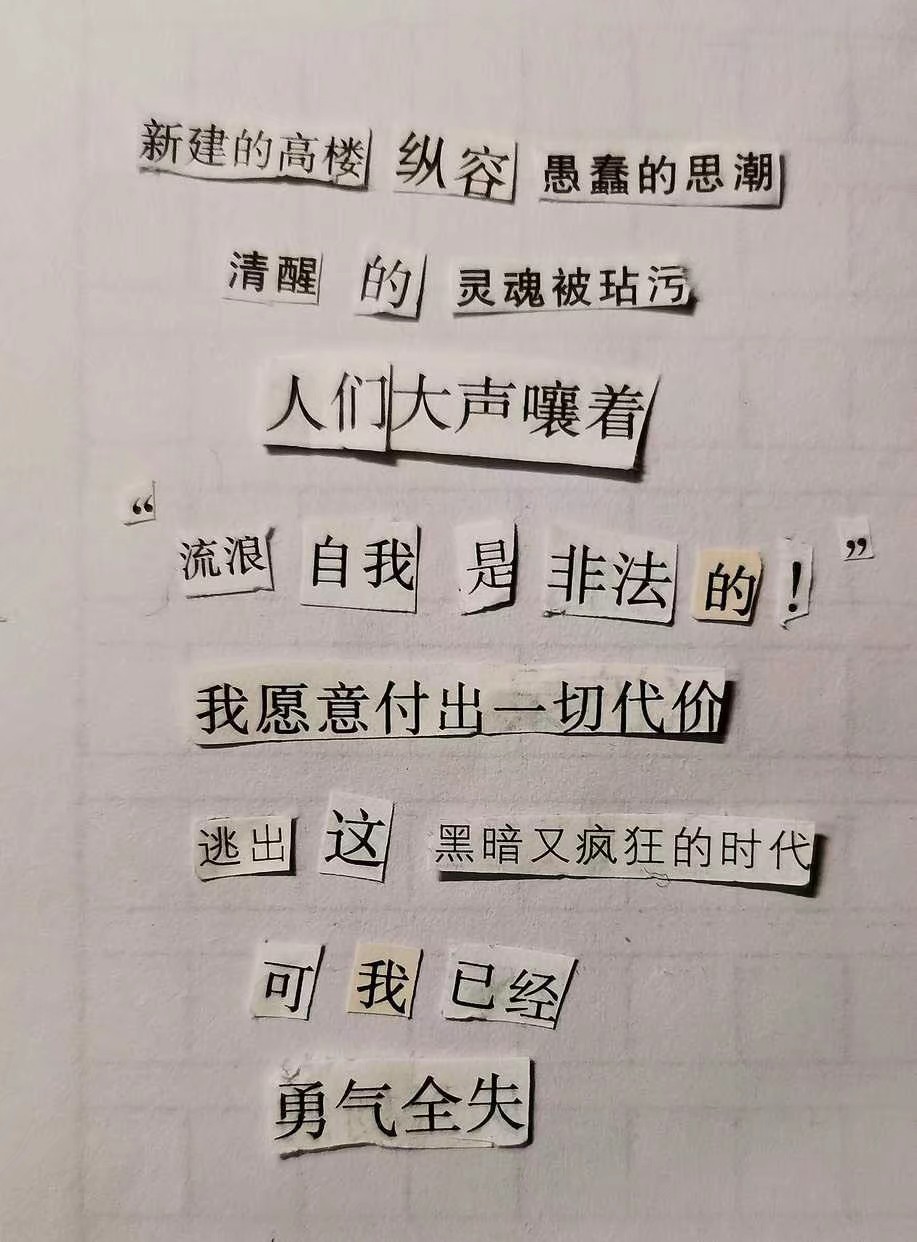 新建的高楼 纵容 愚蠢的思潮
清醒 的 灵魂被玷污
人们大声嚷着
“流浪 自我 是 非法 的！”
我愿意付出一切代价
逃出 这 黑暗又疯狂的时代
可 我 已经
勇气全失